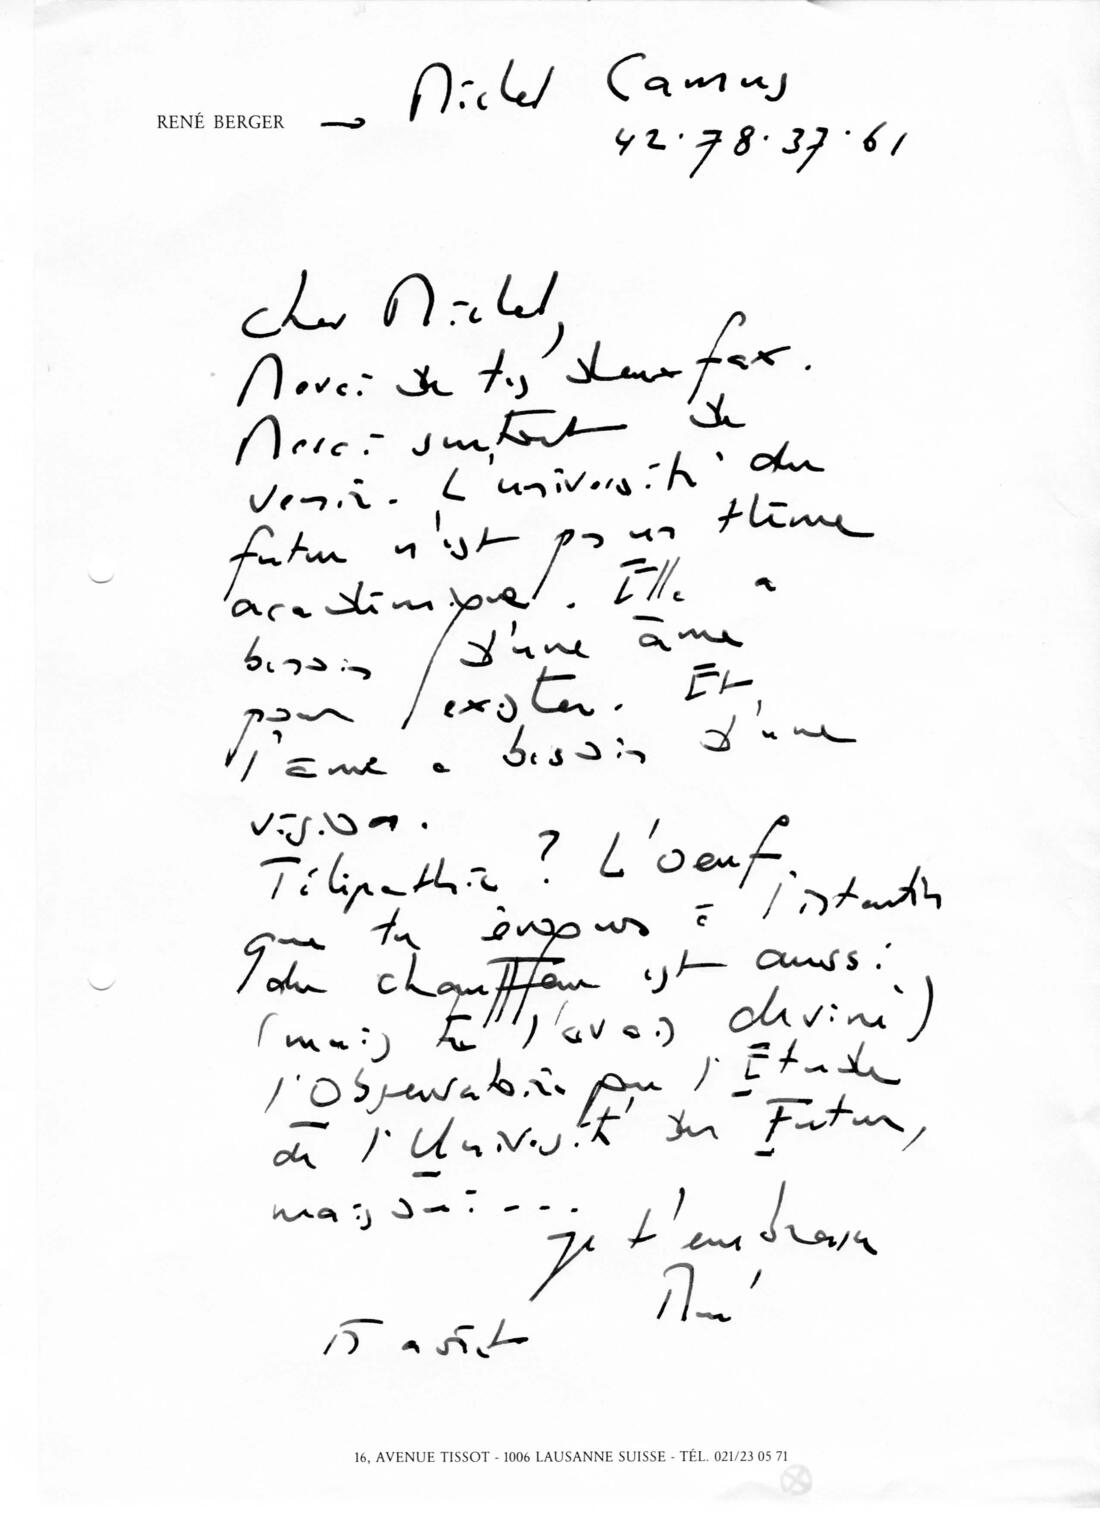 Michel Camus
RENÉ BERGER →
42.78.37.61
Cher Michel,
Merci de tes deux fax.
Merci surtout de
venir. L'université du
futur n'est pas un thème
académique. Elle a
besoin d'une âme
pour exister. Et
l'âme a besoin d'une
vision.
Télépathie ? L'oeuf
que tu évoques à l'instant
du chauffeur est aussi
(mais tu l'avais deviné)
l'Observatoire pour l'Etude
de l'Université du Futur,
mais oui ....
je t'embrasse
René
15 août
16, AVENUE TISSOT - 1006 LAUSANNE SUISSE - TÉL. 021/23 05 71